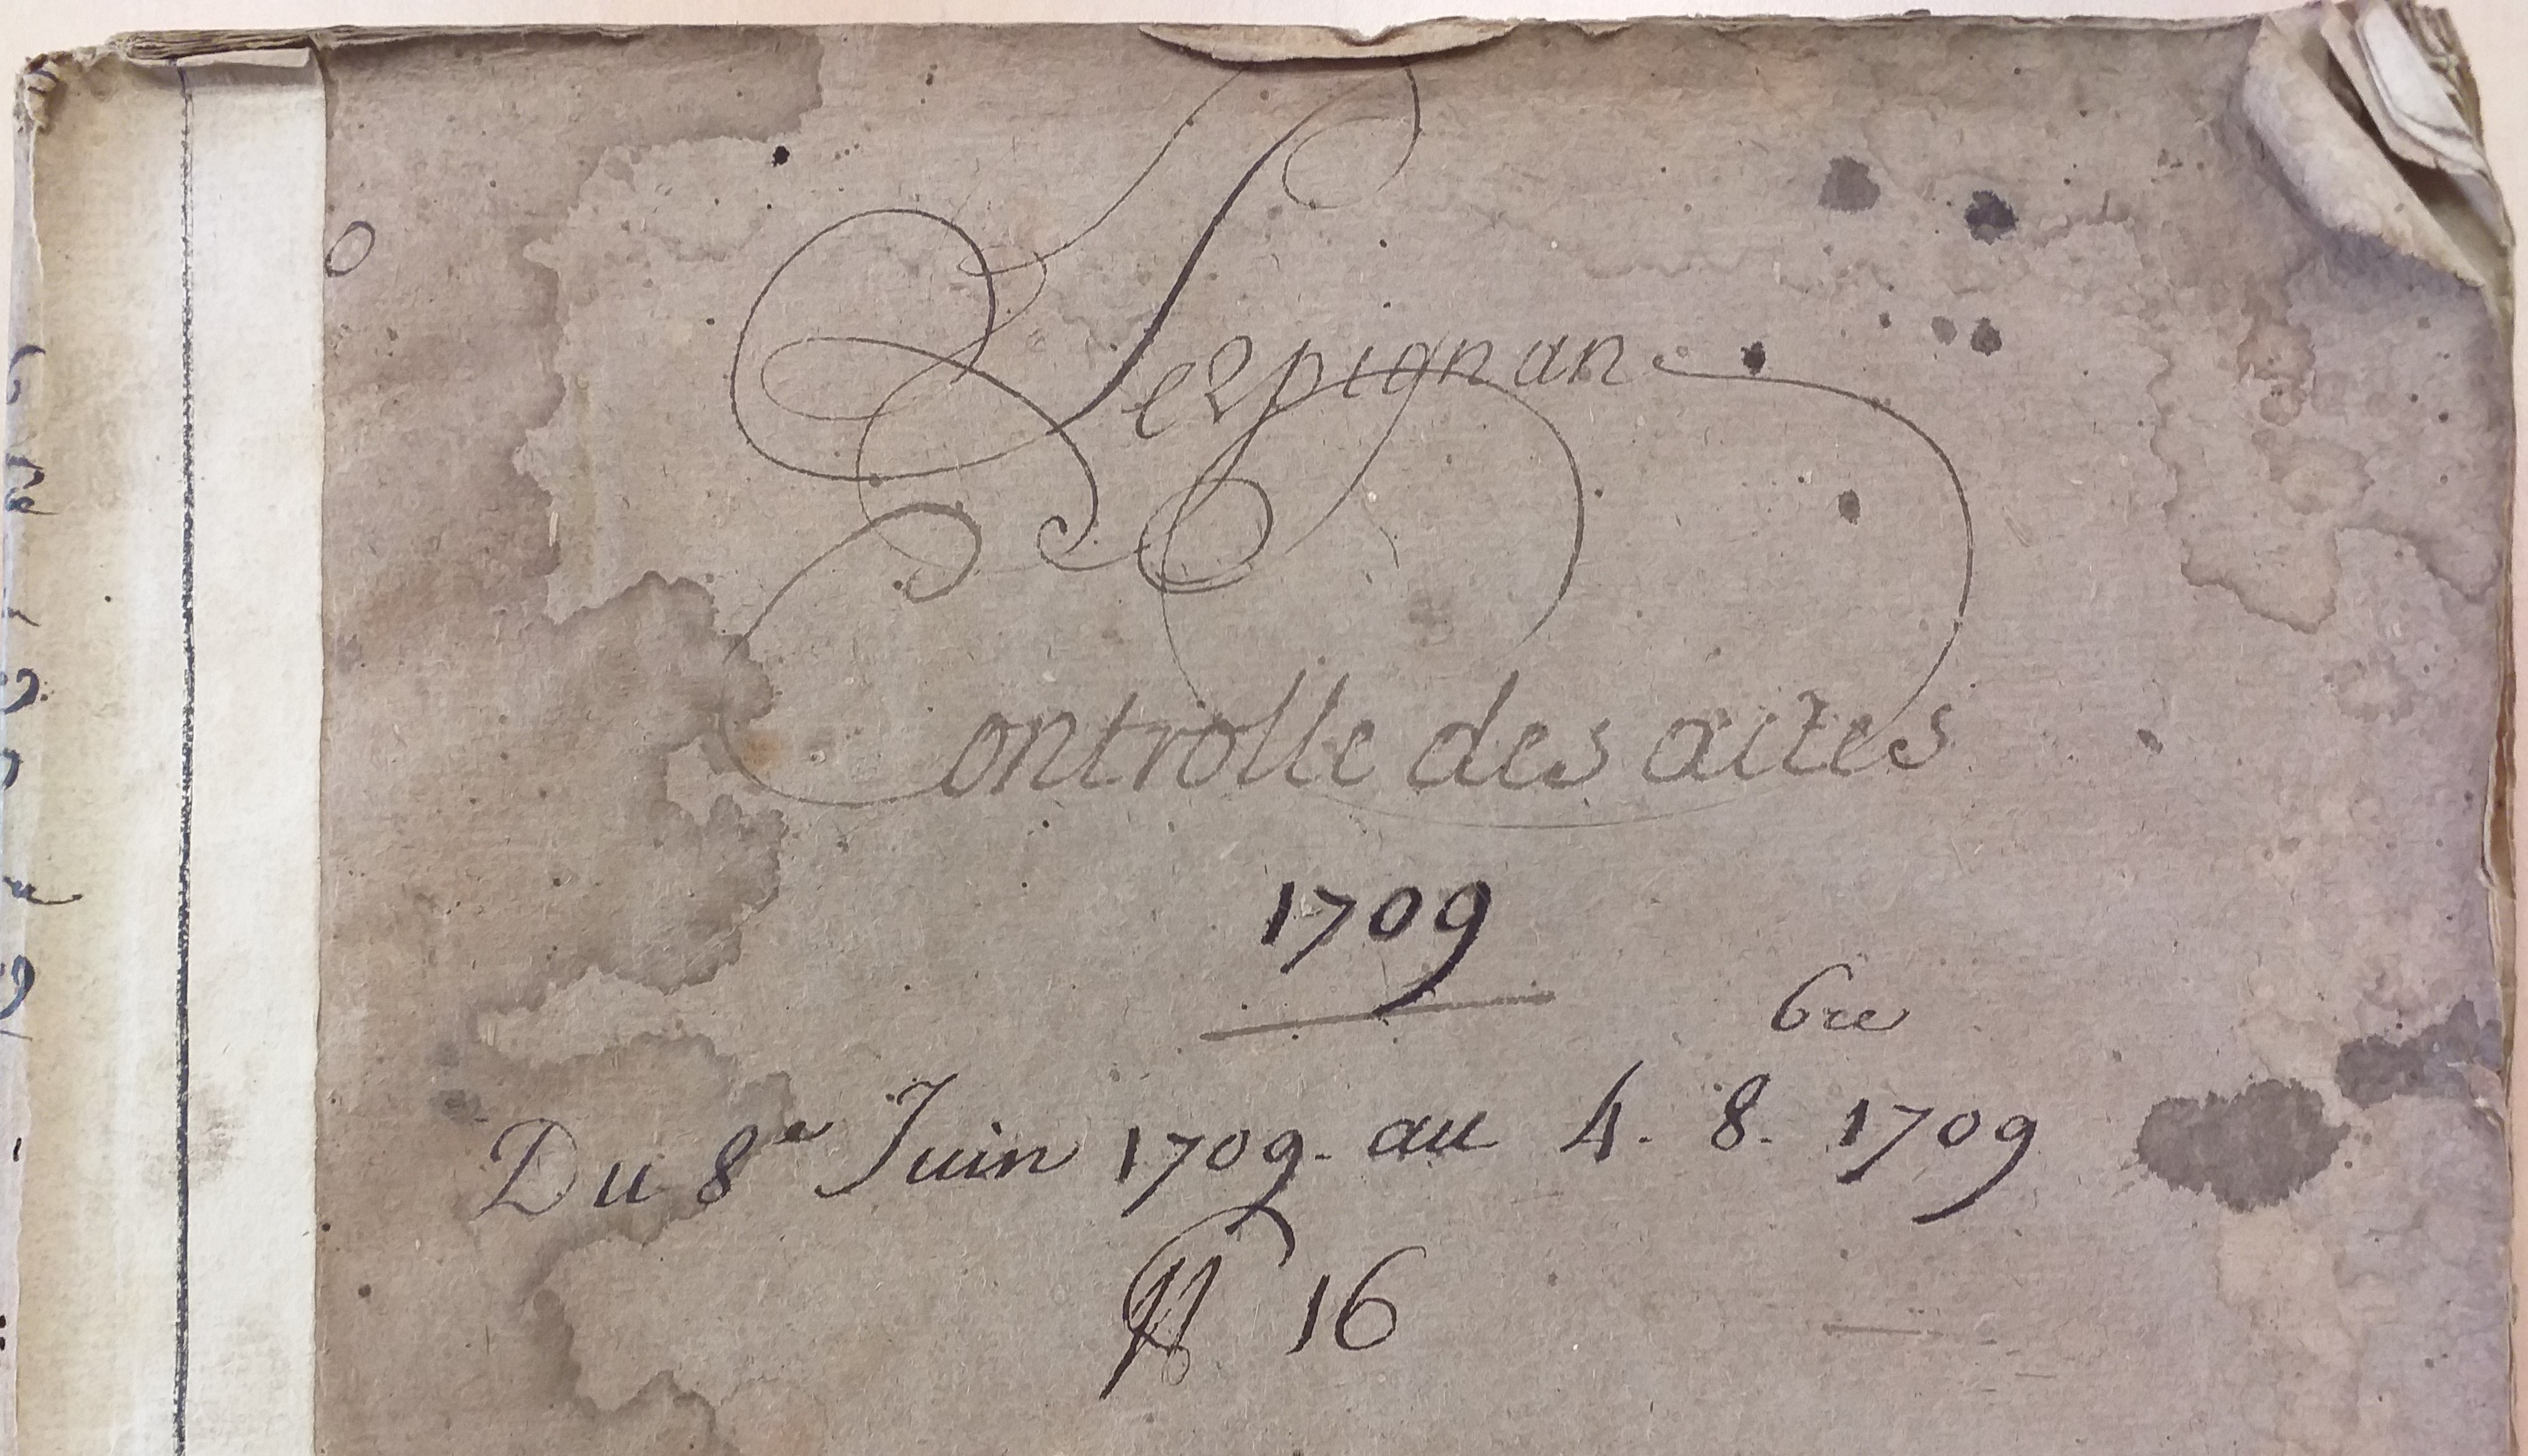 Perpignan
Controlle des actes
1709
Du 8e Juin 1709. au 4. 8.bre 1709
N 16